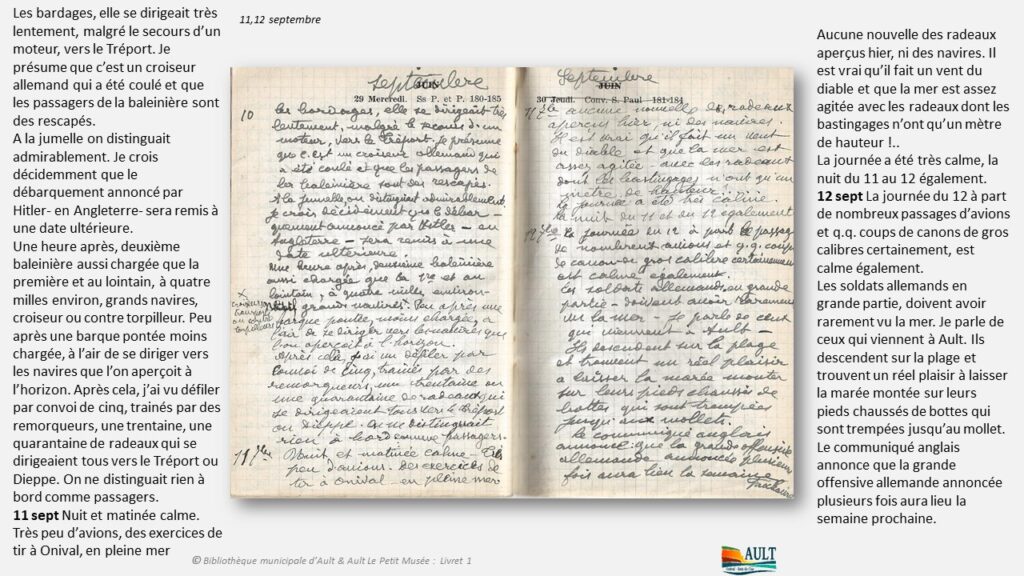 Les bardages, elle se dirigeait très
lentement, malgré le secours d’un
moteur, vers le Tréport. Je
présume que c’est un croiseur
allemand qui a été coulé et que
les passagers de la baleinière sont
des rescapés.
A la jumelle on distinguait
admirablement. Je crois
décidemment que le
débarquement annoncé par
Hitler- en Angleterre- sera remis à
une date ultérieure.
Une heure après, deuxième
baleinière aussi chargée que la
première et au lointain, à quatre
milles environ, grands navires,
croiseur ou contre torpilleur. Peu
après une barque pontée moins
chargée, à l’air de se diriger vers
les navires que l’on aperçoit à
l’horizon. Après cela, j’ai vu défiler
par convoi de cinq, trainés par des
remorqueurs, une trentaine, une
quarantaine de radeaux qui se
dirigeaient tous vers le Tréport ou
Dieppe. On ne distinguait rien à
bord comme passagers.
11 sept Nuit et matinée calme.
Très peu d’avions, des exercices de
tir à Onival, en pleine mer
11,12 septembre
septembre
JUIN
29 Mercredi. Ss P. et P. 180-185
10
les bordages, elle se dirigeait très
lentement, malgré le secours d'un
moteur, vers le Tréport. Je présume
que c'est un croiseur allemand qui
a été coulé et que les passagers de
la baleinière sont des rescapés.
A la jumelle, on distinguait admirablement.
Je crois décidément que le débar-
quement annoncé par Hitler - en
Angleterre - sera remis à une
date ultérieure.
Une heure après, deuxième baleinière
aussi chargée que la 1re et au
lointain, à quatre milles environ
grands navires. Peu après une
barque pontée, moins chargée, a
l'air de se diriger vers les navires que
l'on aperçoit à l'horizon.
Après cela, j'ai vu défiler par
convoi de cinq, trainés par des
remorqueurs, une trentaine ou
une quarantaine de radeaux qui
se dirigeaient tous vers le Tréport
ou Dieppe. On ne distinguait
rien à bord comme passagers.
11 7bre Nuit et matinée calme - Très
peu d'avions. des exercices de
tir à Onival - en pleine mer
Septembre
JUIN
30 Jeudi. Conv. S. Paul 181-184
11 7bre Aucune nouvelle des radeaux
aperçus hier, ni des navires.
Il est vrai qu'il fait un vent
du diable et que la mer est
assez agitée avec les radeaux
dont les bastingages n'ont qu'un
mètre de hauteur !....
La journée a été très calme.
La nuit du 11 et du 12 également.
12 7bre La journée du 12 à part le passage
de nombreux avions et q.q. coups
de canon de gros calibre certainement
est calme également.
Les soldats allemands, en grande
partie - doivent avoir rarement
vu la mer - Je parle de ceux
qui viennent à Ault -
Ils descendent sur la plage
et trouvent un réel plaisir
à laisser la marée monter
sur leurs pieds chaussés de
bottes qui sont trempées
jusqu'aux mollets.
Le communiqué anglais
annonce que la grande offensive
allemande annoncée plusieurs
fois aura lieu la semaine
prochaine
Aucune nouvelle des radeaux
aperçus hier, ni des navires. Il
est vrai qu’il fait un vent du
diable et que la mer est assez
agitée avec les radeaux dont les
bastingages n’ont qu’un mètre
de hauteur !..
La journée a été très calme, la
nuit du 11 au 12 également.
12 sept La journée du 12 à part
de nombreux passages d’avions
et q.q. coups de canons de gros
calibres certainement, est
calme également.
Les soldats allemands en
grande partie, doivent avoir
rarement vu la mer. Je parle de
ceux qui viennent à Ault. Ils
descendent sur la plage et
trouvent un réel plaisir à laisser
la marée montée sur leurs
pieds chaussés de bottes qui
sont trempées jusqu’au mollet.
Le communiqué anglais
annonce que la grande
offensive allemande annoncée
plusieurs fois aura lieu la
semaine prochaine.
© Bibliothèque municipale d’Ault & Ault Le Petit Musée : Livret 1
AULT